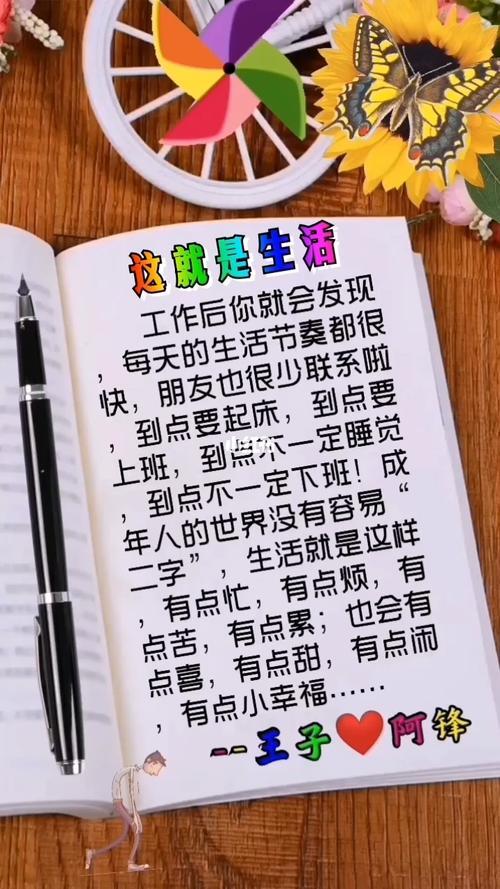 这就是生活
工作后你就会发现
，每天的生活节奏都很
快，朋友也很少联系啦
，到点要起床，到点要
上班，到点不一定睡觉
，到点不一定下班！成
年人的世界没有容易“
二字”，生活就是这样
，有点忙，有点烦，有
点苦，有点累；也会有
点喜，有点甜，有点闲
，有点小幸福……
--王子❤阿锋
小红书